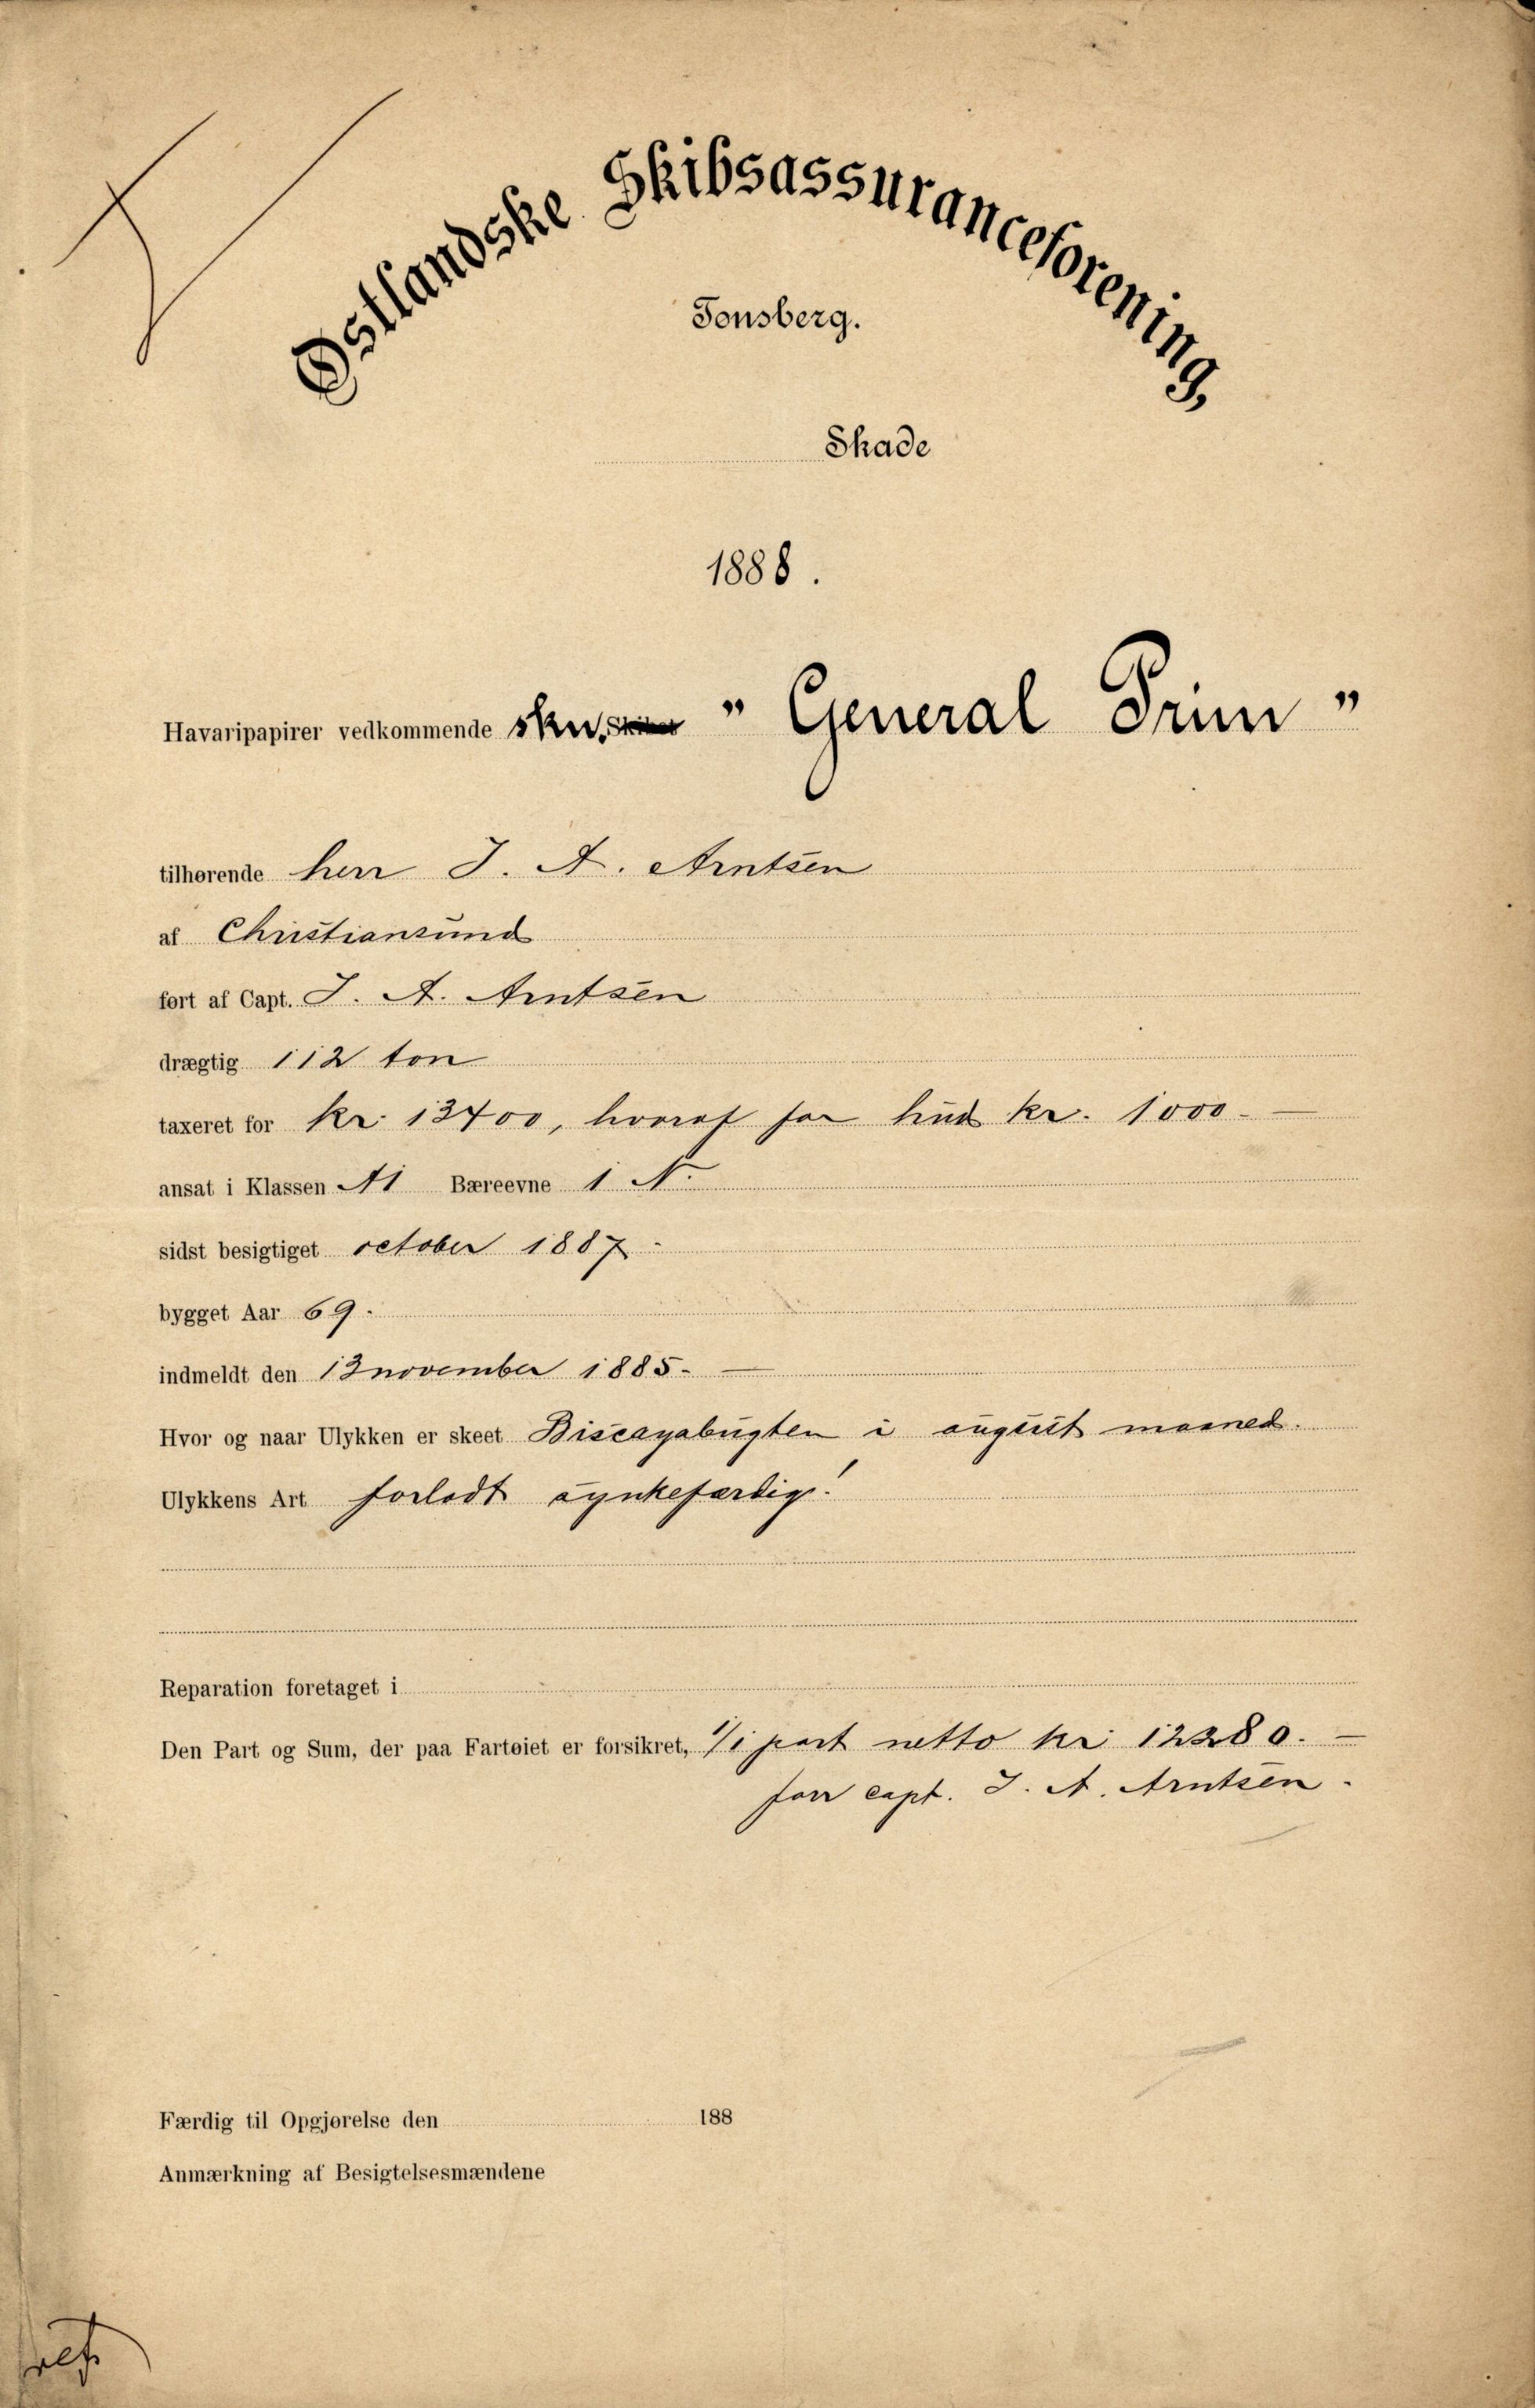 Østlandske Skibsassuranceforening,
Tønsberg.
Skade
1888.
Havaripapirer vedkommende skn. Skibet "General Prim"
tilhørende herr J. A. Arntsen
af Christiansund
ført af Capt. J. A. Arntsen
drægtig 112 ton
taxeret for kr. 13400, hvoraf for hud kr. 1000 –
ansat i Klassen A1 Bæreevne 1 N.
sidst besigtiget october 1887 -
bygget Aar 69.
indmeldt den 13 november 1885. —
Hvor og naar Ulykken er skeet Biscayabugten i august maaned.
Ulykkens Art forlodt synkefærdig!
Reparation foretaget i
Den Part og Sum, der paa Fartøiet er forsikret, 1/1 part netto kr 12280. –
for capt. J. A. Arntsen.
Færdig til Opgjørelse den 188
Anmærkning af Besigtelsesmændene